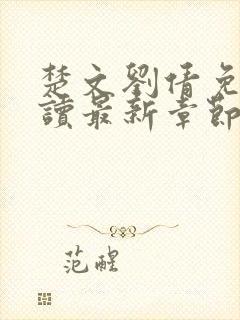 楚文劉倩免
讀最新章節
范醒